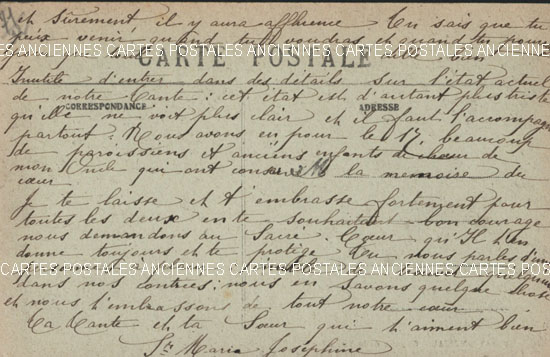 et sûrement il y aura affluence Tu sais que tu
peux venir quand tu le voudras et quand tu pour
CARTES POSTALES ANCIENNES CARTES POSTALES ANCIENNES CARTES POSTALES ANCIENNES
CARTE POSTALE
bien
Inutile d'entrer dans des détails sur l'état actuel
de notre Tante : cet état est d'autant plus triste
CORRESPONDANCE ADRESSE
qu'elle ne voit plus clair et il faut l'accompa
partout. Nous avons eu pour le 17 beaucoup
de paroissiens et anciens enfants de chœur de
mon Oncle qui ont conservé la mémoire du
cœur
Je te laisse et t'embrasse fortement pour
toutes les deux en te souhaitant bon courage
nous demandons au Sacré Cœur qu'Il t'en
donne toujours et te protège Tu nous parles d'un
CARTES POSTALES ANCIENNES CARTES POSTALES ANCIENNES CARTES POSTALES ANCIENNES
dans nos contrées : nous en savons quelque chose
et nous t'embrassons de tout notre cœur
Ta Tante et ta Sœur qui t'aiment bien
Sr Marie Joséphine